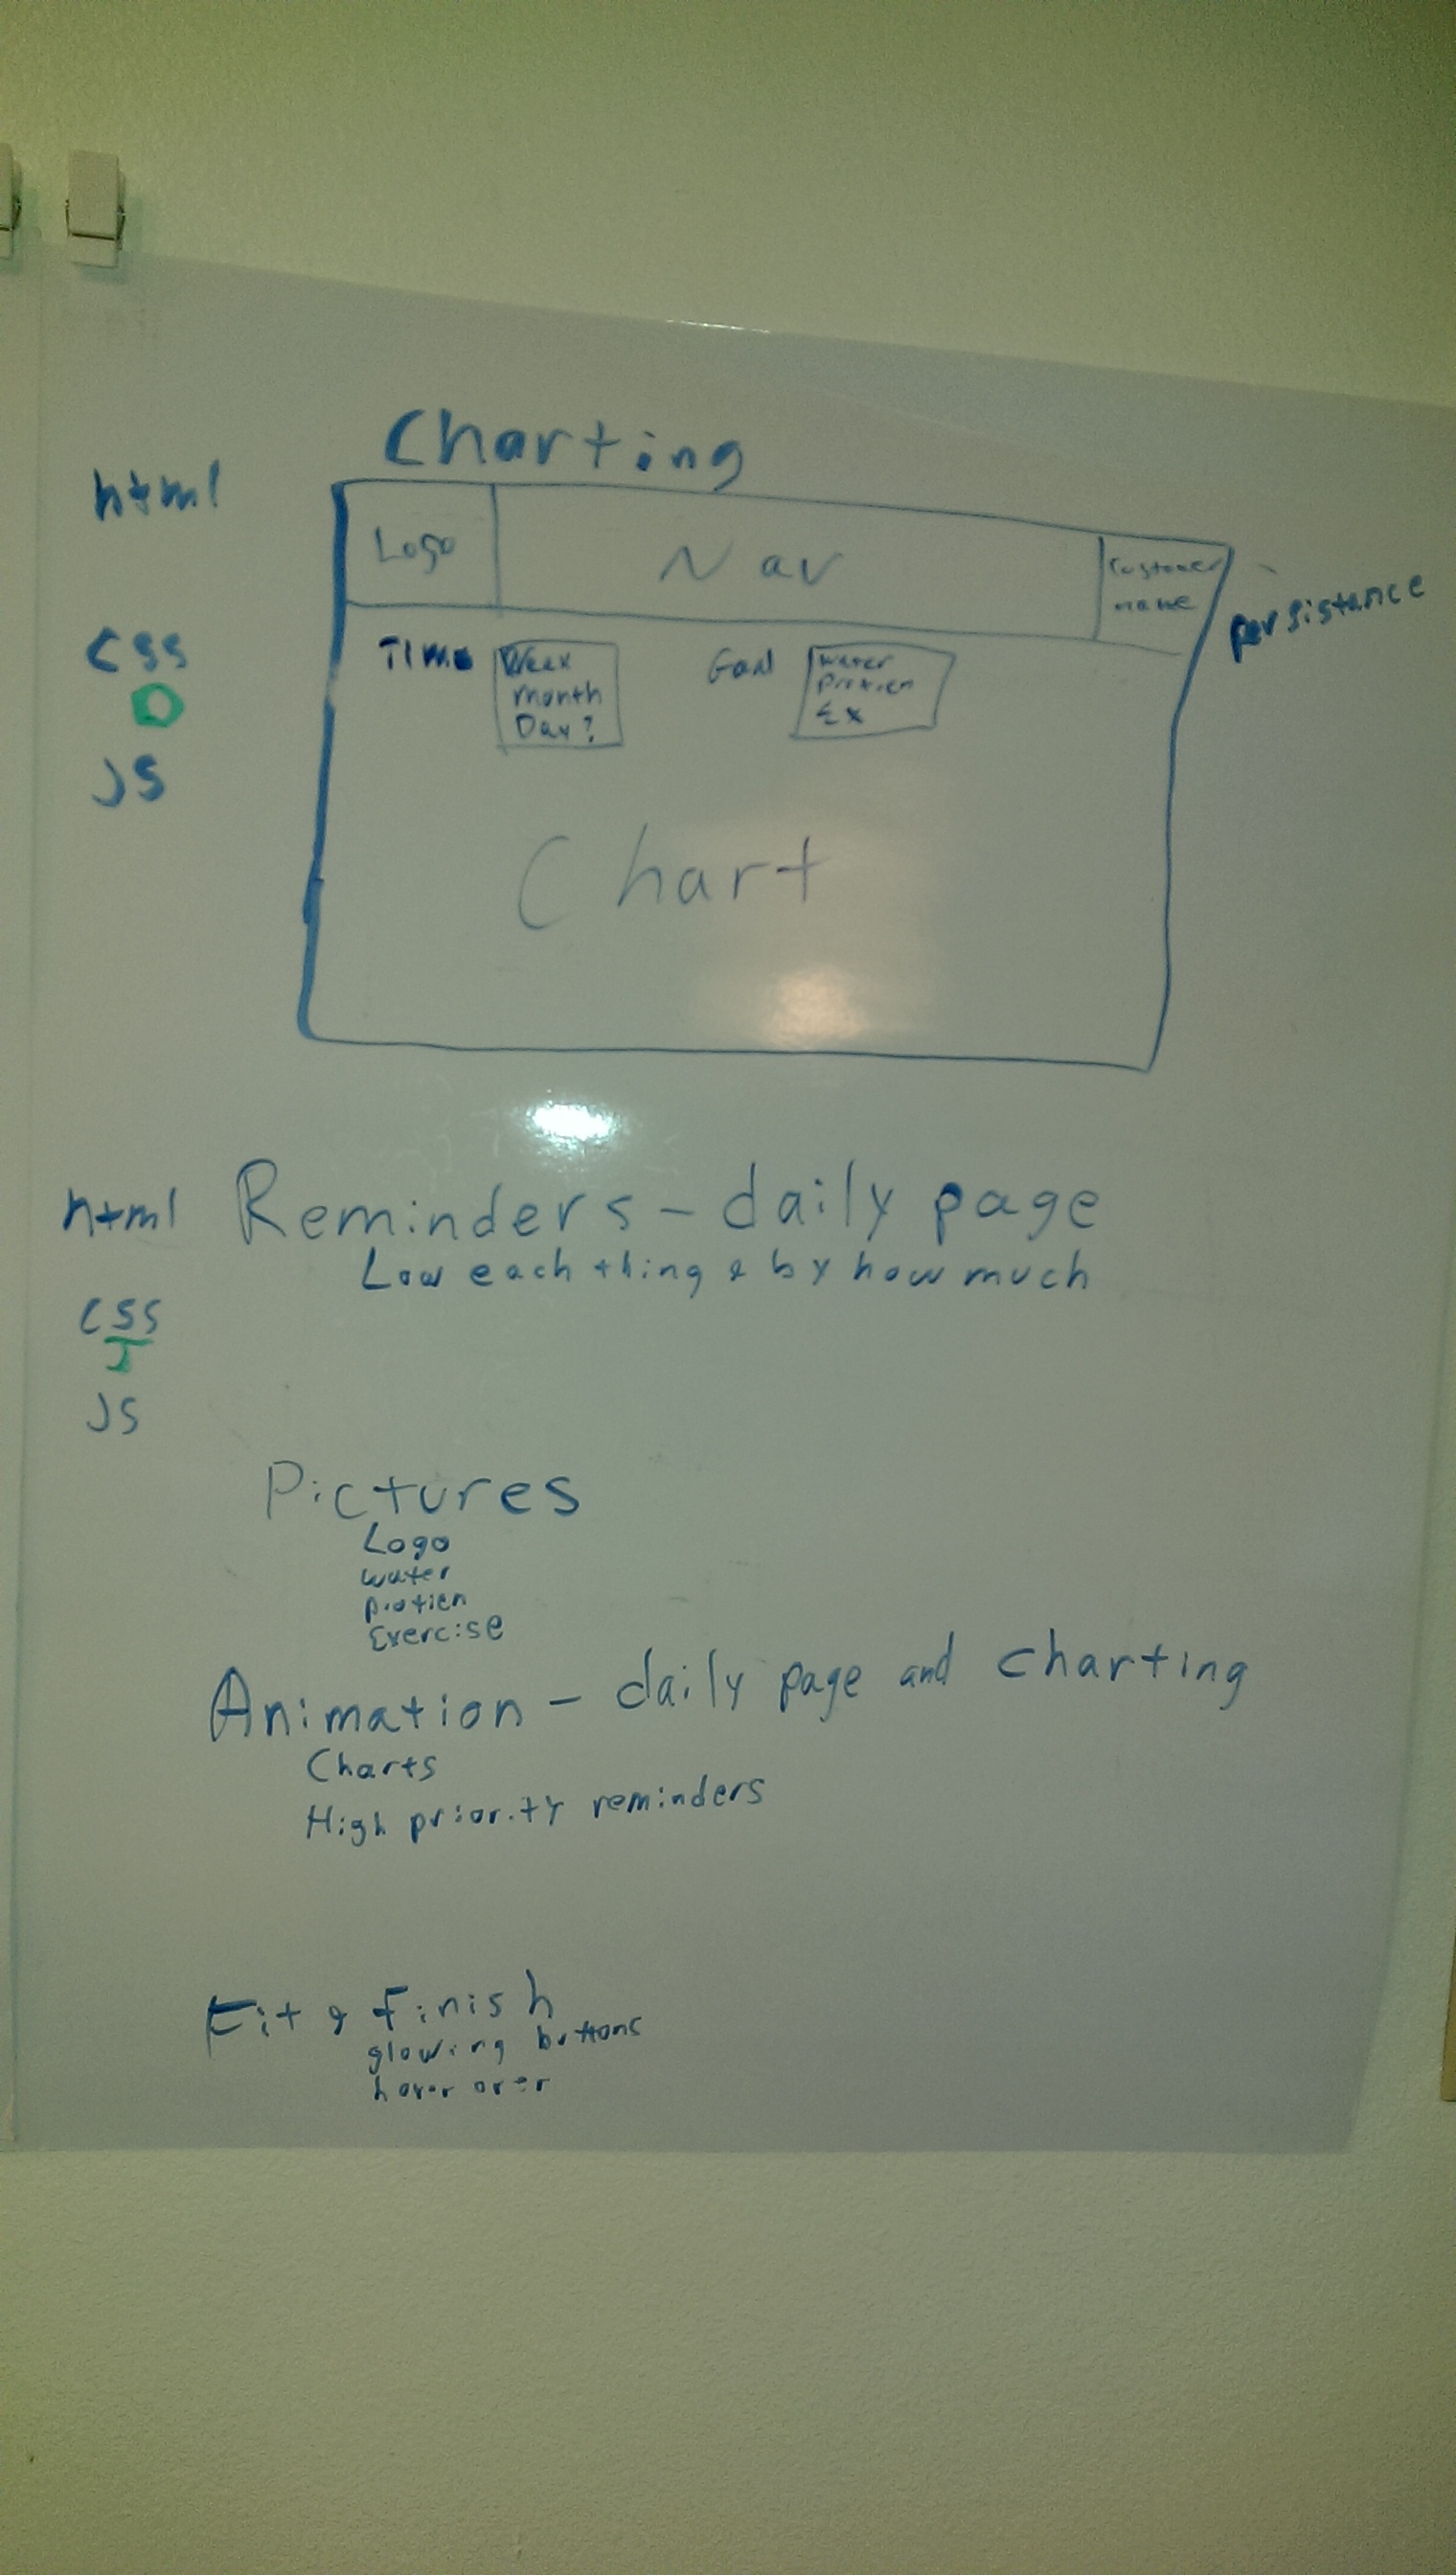 Charting
html
Logo Nav Customer name
persistance
css
Time Week Goal water
month protien
Day? Ex
JS
Chart
html Reminders - daily page
Low each thing & by how much
css
JS
Pictures
Logo
water
protien
Exercise
Animation - daily page and charting
Charts
High priority reminders
Fit & Finish
glowing buttons
hover over